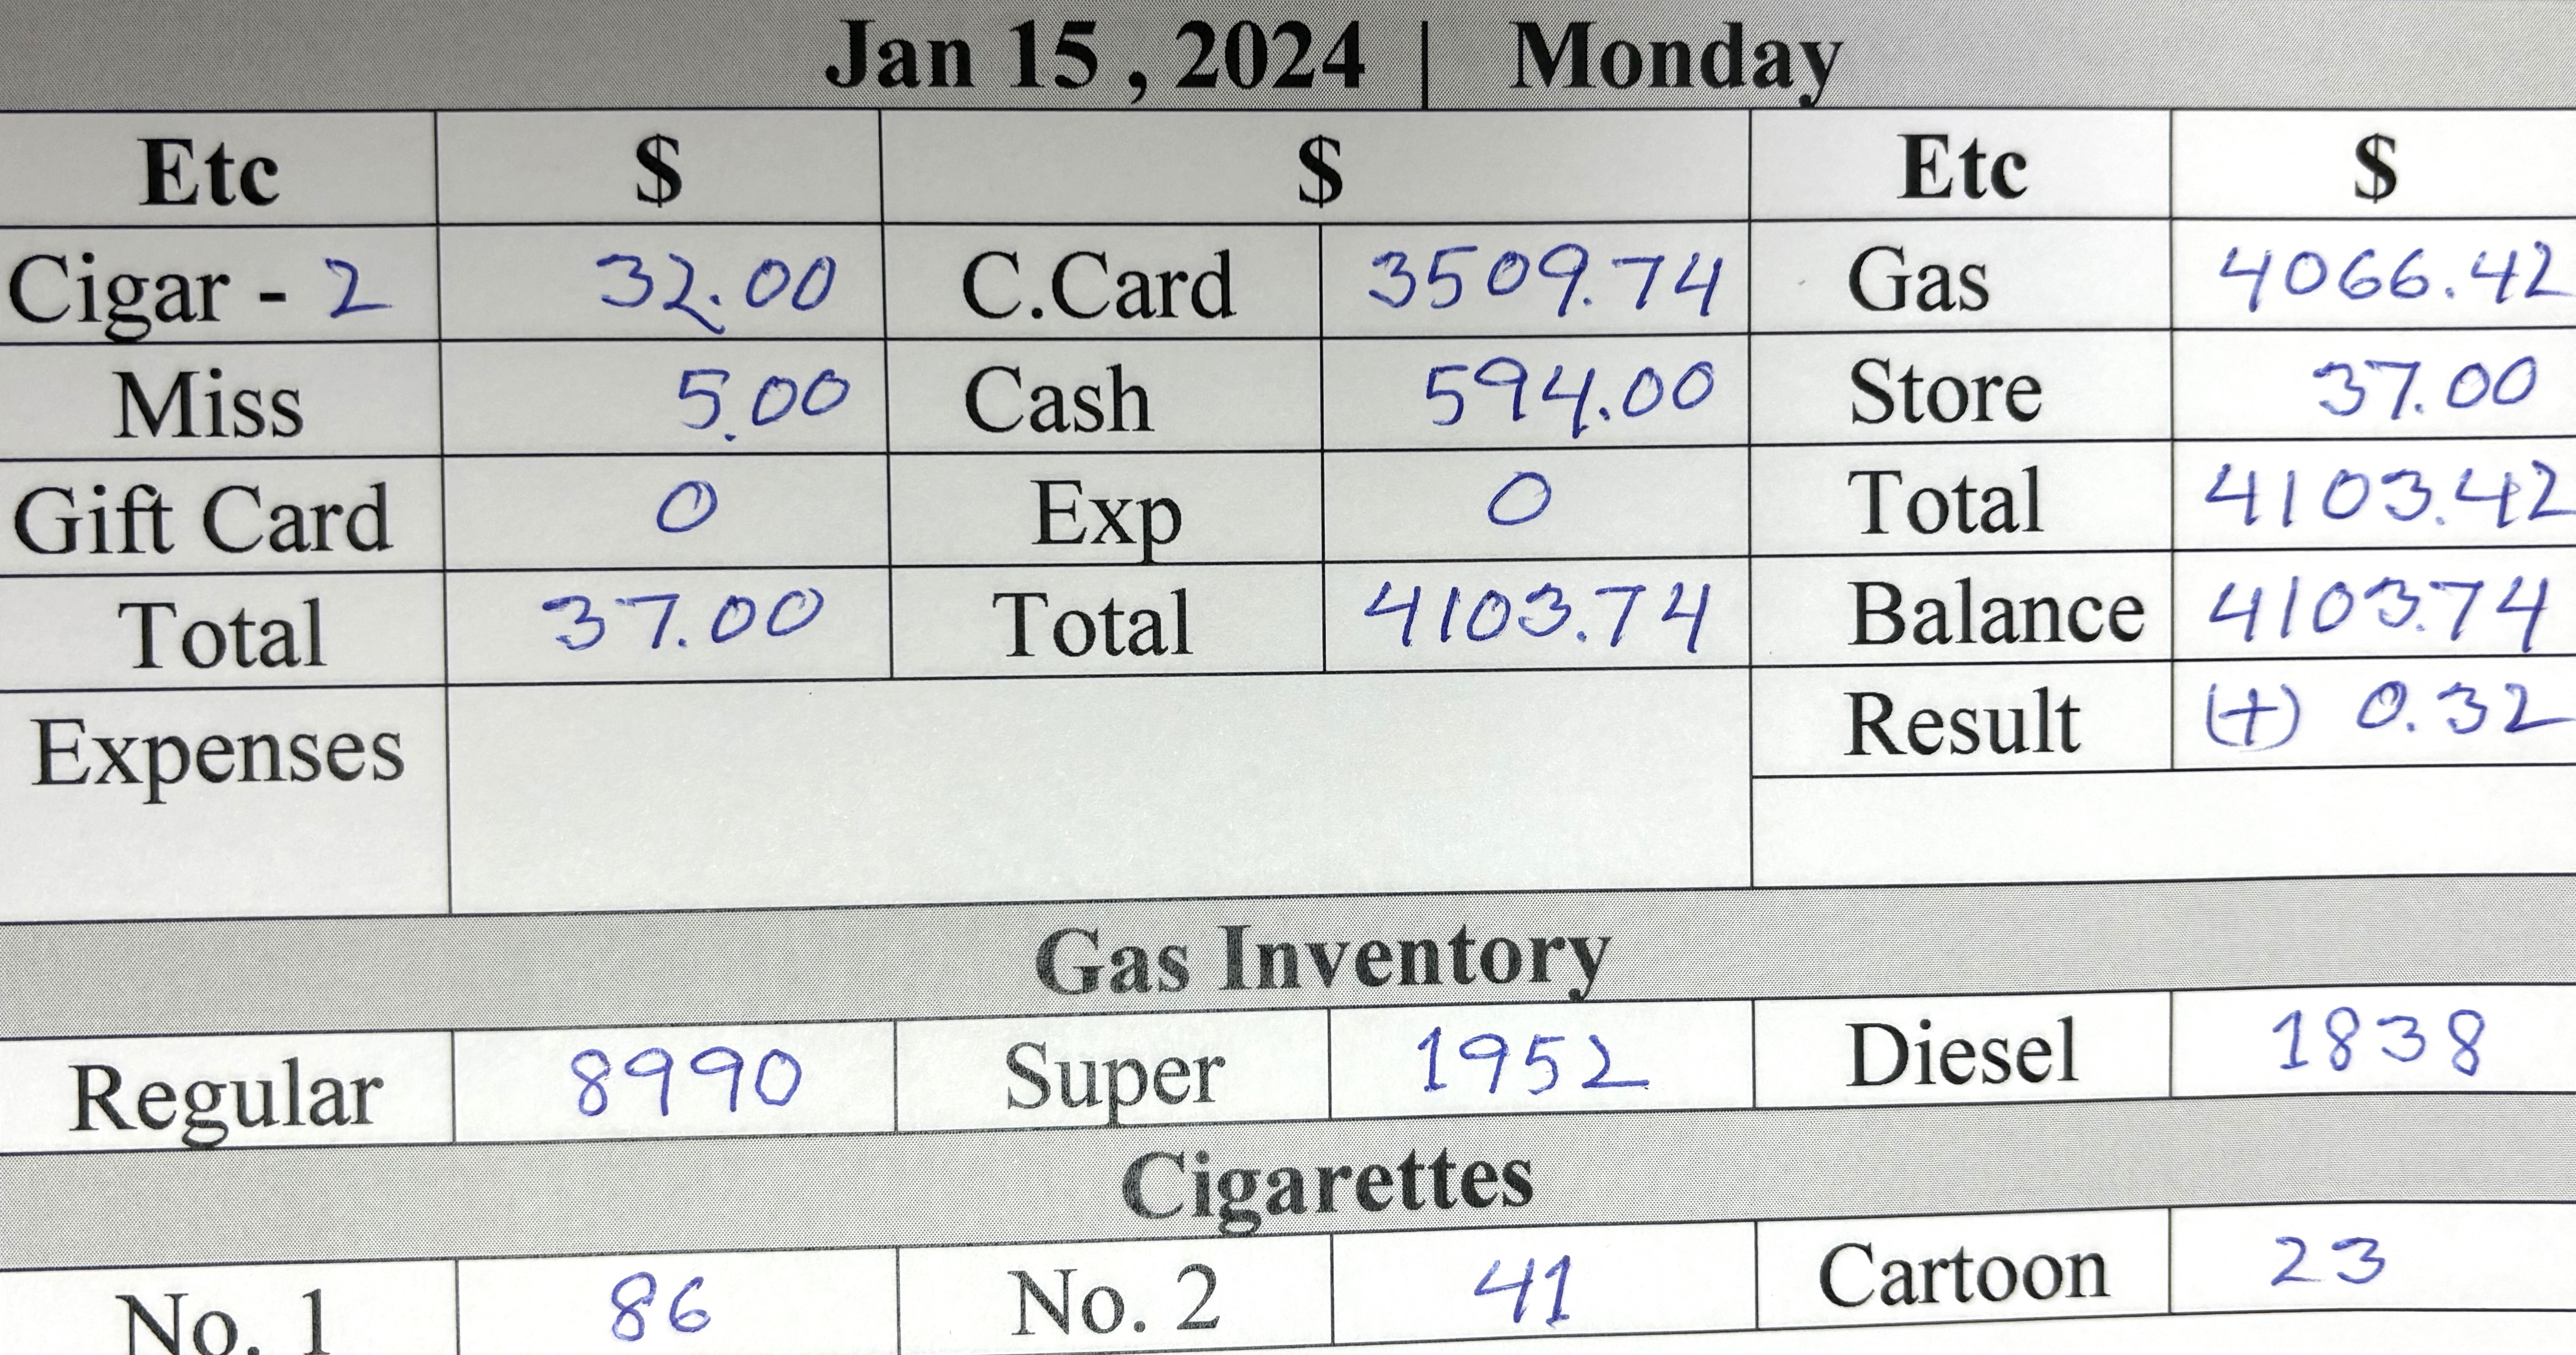 Jan 15 , 2024 | Monday
Etc $ $ Etc $
Cigar - 2 32.00 C.Card 3509.74 Gas 4066.42
Miss 5.00 Cash 594.00 Store 37.00
Gift Card 0 Exp 0 Total 4103.42
Total 37.00 Total 4103.74 Balance 4103.74
Expenses Result (+) 0.32
Gas Inventory
Regular 8990 Super 1952 Diesel 1838
Cigarettes
No. 1 86 No. 2 41 Cartoon 23